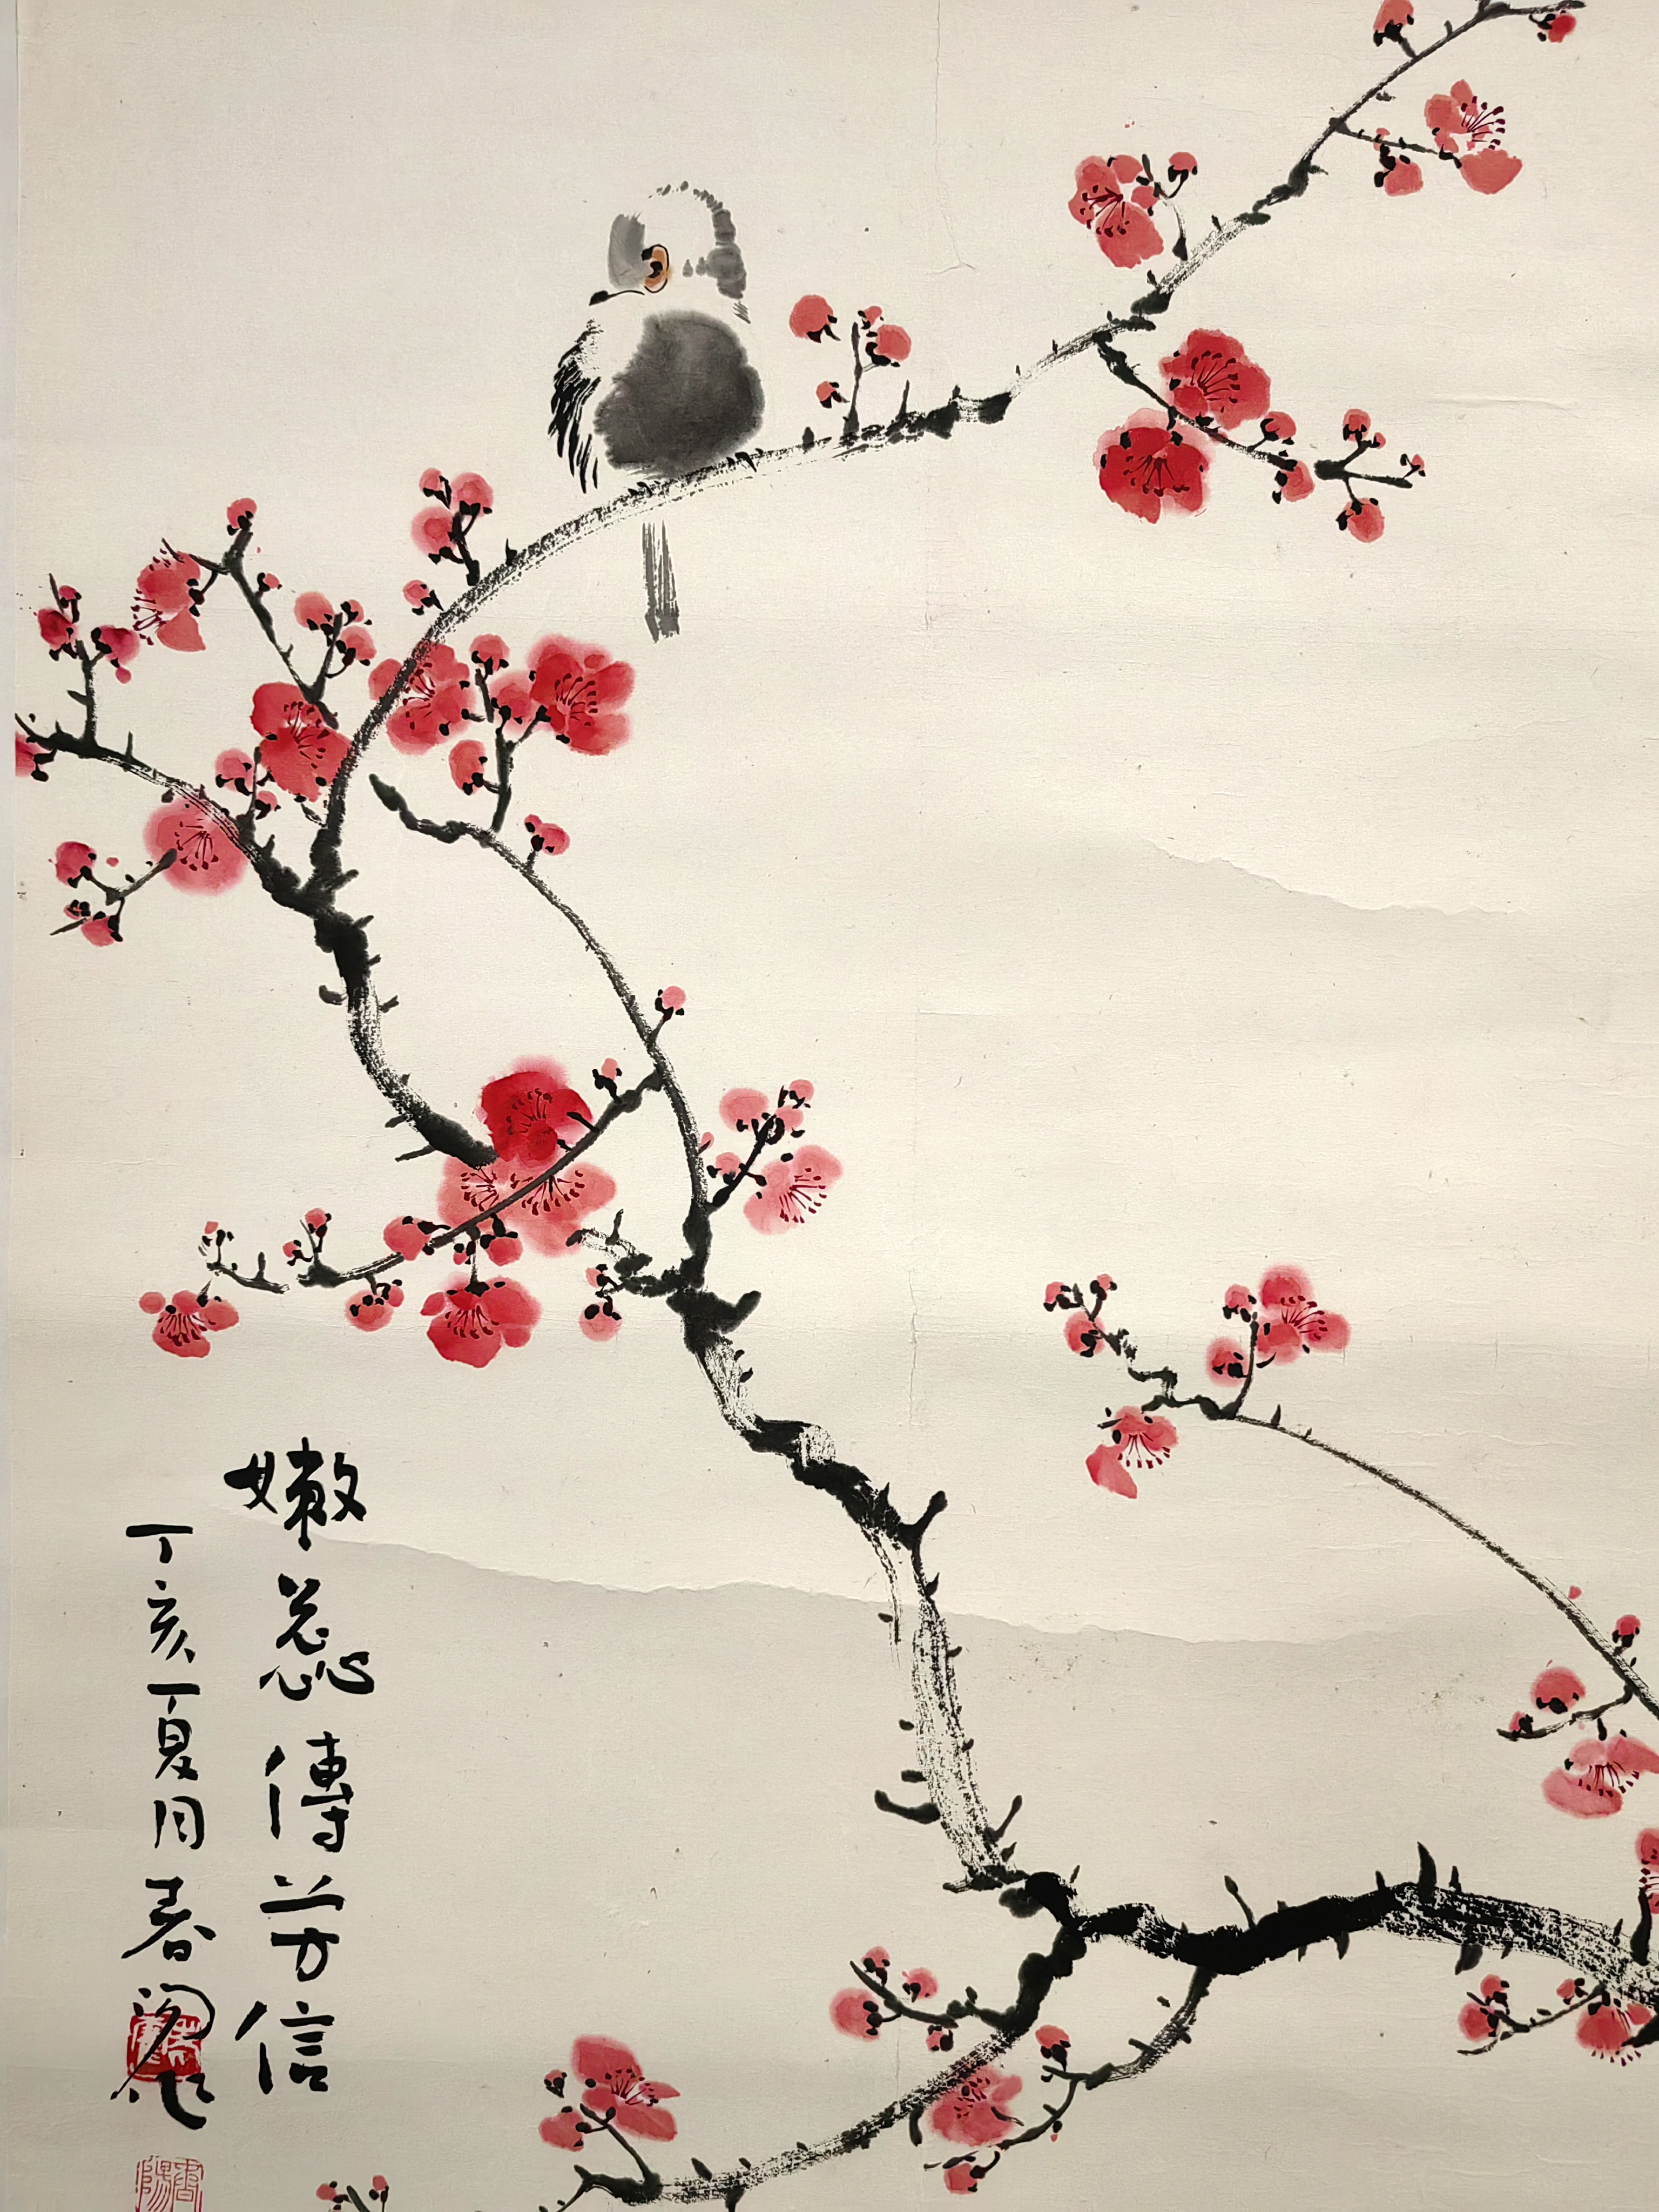 嫩蕊傳芳信
丁亥夏月春阁作